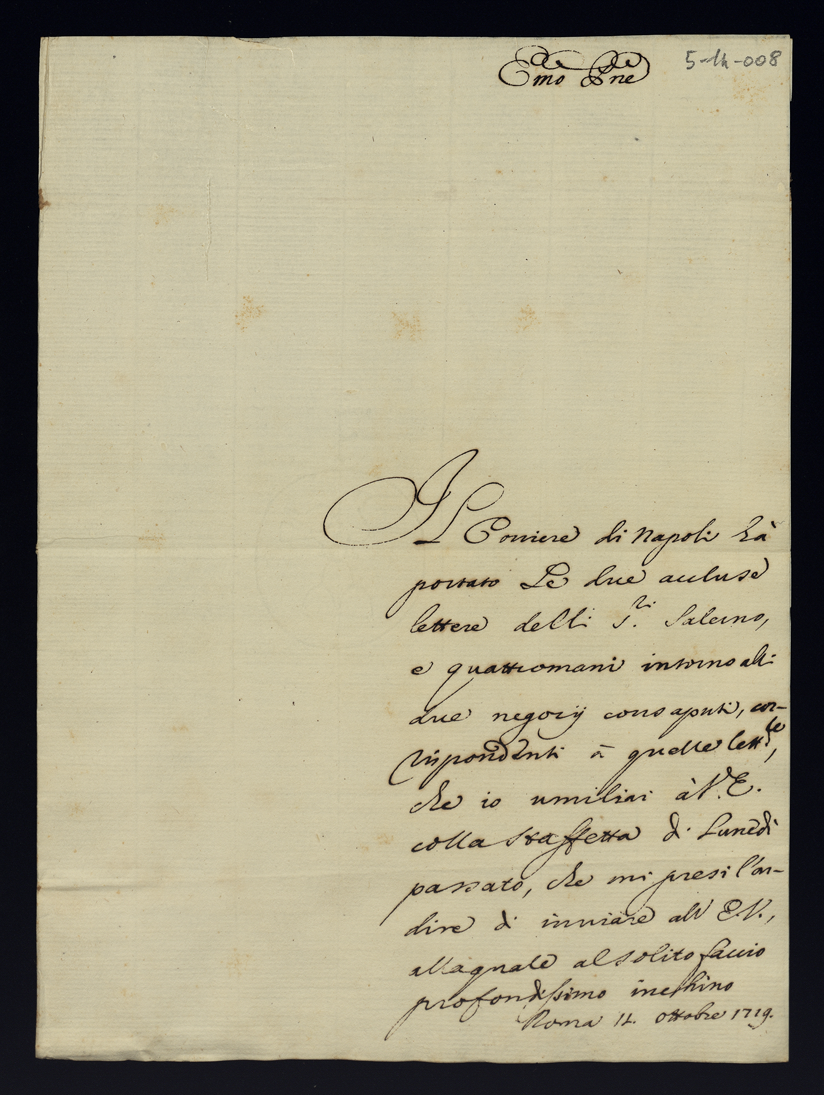 Emo Pne
5-14-008
Il Corriere di Napoli hà
portato Le due accluse
lettere delli S.ri Salerno,
e quattromani intorno alli
due negozij consaputi, cor-
rispondenti à quelle lett.re,
che io umiliai à V.E.
colla staffetta di Lunedi
passato, che mi presi l'ar-
dire di inviare all' E.V.,
alla quale al solito faccio
profondissimo inchino
Roma 14. Ottobre 1719.